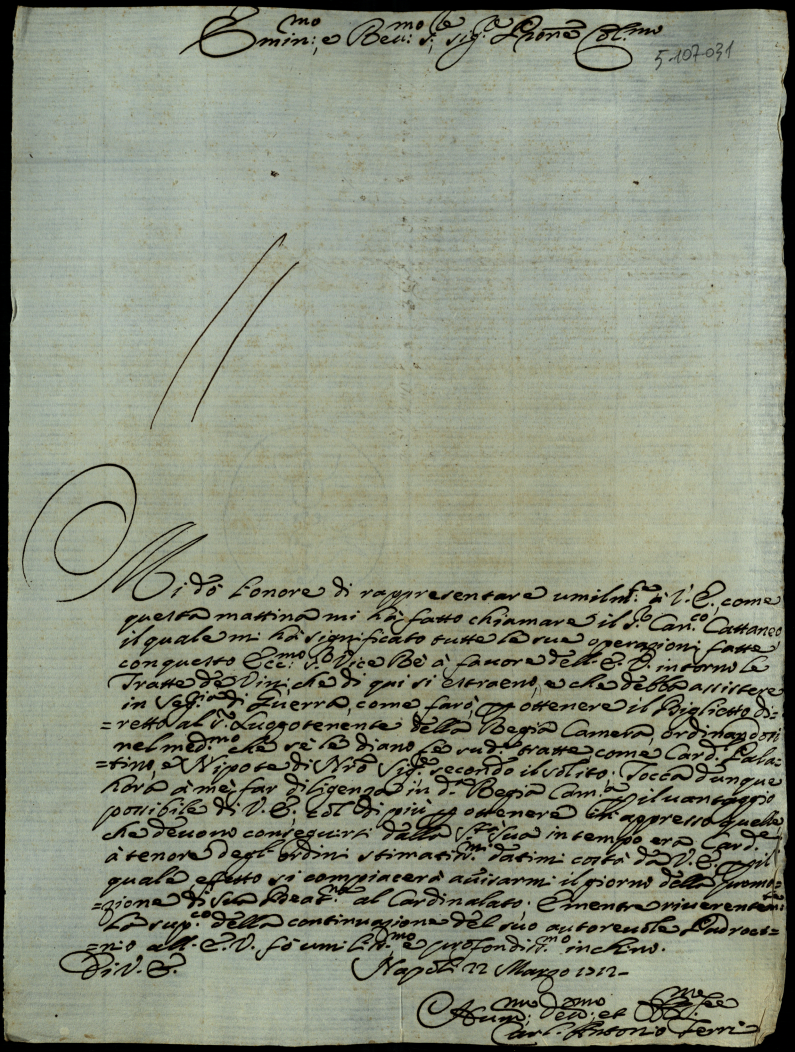 Emin:mo, e Reu:mo s:, sig:re Prone Col:mo
5-107-031
Mi dò l'onore di rappresentare umilm:te à V. E., come
questa mattina mi hà fatto chiamare il s:r Can:co Cattaneo
il quale mi hà significato tutte le sue operazioni fatte
con questo Ecc:mo s:r Vice Rè à favore dell'E. V. intorno le
Tratte de Vini, che di quì si estraeno, e che debba assistere
in Seg:ria di Guerra, come farò, p ottenere il Biglietto di-
=retto al s:r Luogotenente della Regia Camera, ordinandosi
nel med:mo che se le diano le sud:e tratte come Card:e Pala-
=tino, e Nipote di Nrõ Sig:re secondo il solito. Tocca dunque
hora à me far diligenza in d:a Regia Cam:a p il vantaggio
possibile di V. E., col di più p ottenere in appresso quelle
che devono conseguirsi dalla S:tà Sua in tempo era Card:e
à tenore degl'ordini stimatis:mi datimi costà da V. E., p il
quale efetto si compiacerà auisarmi il giorno della promo-
=zione di sua Beat:ne al Cardinalato. E mentre riuerentem:te
La sup:co della continuazione del suo autoreuole Padroci-
=nio all'E. V. fò umilis:mo e profondis:mo inchino.
Di V. E.
Napoli 22 Marzo 1712-
Hum:mo deu:mo et
Carl'Antonio Terri